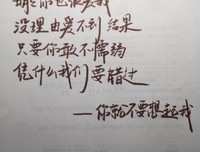 没理由爱不到结果
只要你敢不懦弱
凭什么我们要错过
——你就不要想起我